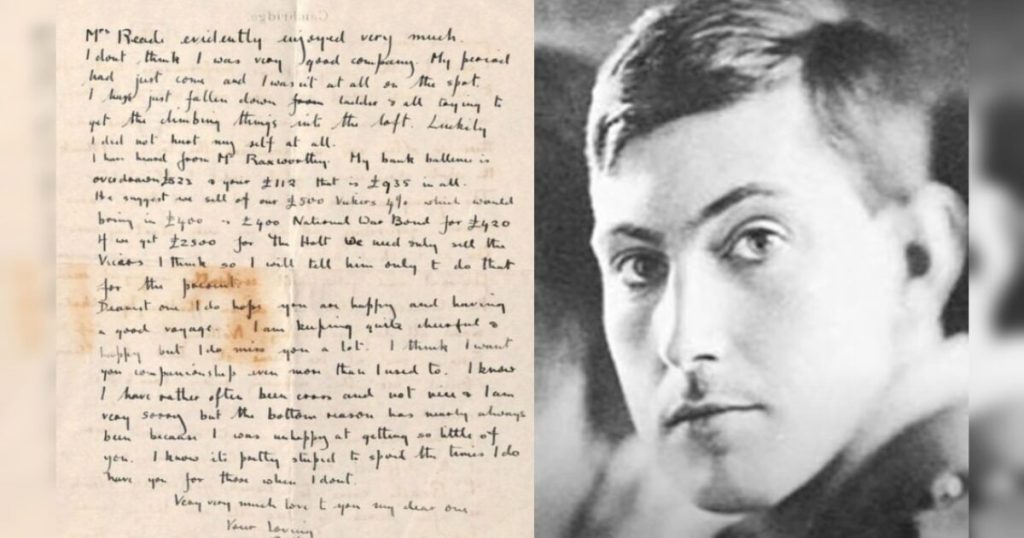 Cambridge.
Mrs Reade evidently enjoyed very much.
I dont think I was very good company. My period
had just come and I wasit at all on the spot.
I have just fallen down from ladder & all trying to
get the climbing things into the loft. Luckily
I did not hurt my self at all.
I have heard from Mr Raxworthy. My bank ballence is
overdrawn £823 & your £112 that is £935 in all.
He suggest we sell of our £500 Vickers 4% which would
bring in £400 & £400 National War Bond for £420
If we get £2500 for The Holt we need only sell the
Vicers I think so I will tell him only to do that
for the present.
Dearest one I do hope you are happy and having
a good voyage. I am keeping quite cheerful &
happy but I do miss you a lot. I think I want
you companionship even more than I used to. I know
I have rather often been cross and not nice & I am
very sorry but the bottom reason has nearly always
been because I was unhappy at getting so little of
you. I know its pretty stupid to spoil the times I do
have you for those when I dont.
Very very much love to you my dear one
Your loving